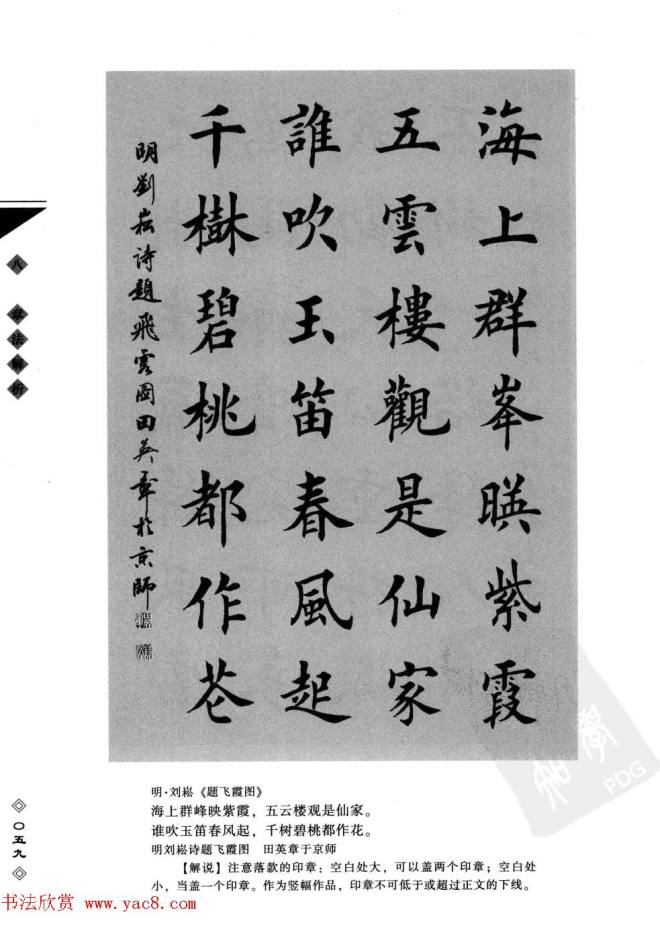 海上群峯暎紫霞
五雲樓觀是仙家
誰吹玉笛春風起
千樹碧桃都作花
明劉崧诗題飛霞圖田英章於京師
八 章法解析
明·刘崧《题飞霞图》
海上群峰映紫霞，五云楼观是仙家。
谁吹玉笛春风起，千树碧桃都作花。
明刘崧诗题飞霞图 田英章于京师
【解说】注意落款的印章：空白处大，可以盖两个印章；空白处
小，当盖一个印章。作为竖幅作品，印章不可低于或超过正文的下线。
〇五九
书法欣赏 www.yac8.com
PDG